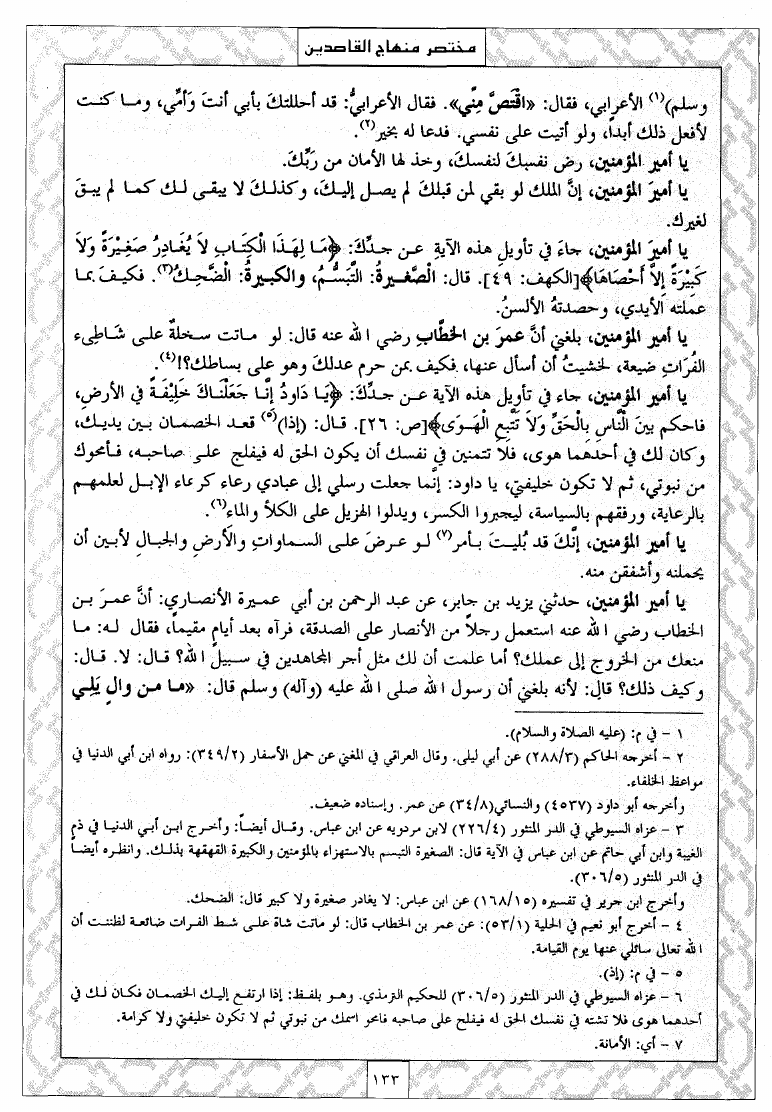 مختصر منهاج القاصدين
وسلم)(١) الأعرابي، فقال: «اقْتَصَّ مِنِّي». فقال الأعرابيُّ: قد أحللتكَ بأبي أنتَ وَأُمِّي، وما كنت
لأفعل ذلك أبداً، ولو أتيت على نفسي. فدعا له بخير(٢).
يا أمير المؤمنين، رض نفسكَ لنفسكَ، وخذ لها الأمان من رَبِّكَ.
يا أميرَ المؤمنين، إنَّ الملك لو بقي لمن قبلكَ لم يصل إليكَ، وكذلكَ لا يبقى لك كما لم يبقَ
لغيرك.
يا أميرَ المؤمنين، جاءَ في تأويلِ هذه الآيةِ عن جدِّكَ: ﴿مَا لِهَذَا الْكِتَابِ لاَ يُغَادِرُ صَغِيْرَةً وَلاَ
كَبِيْرَةً إِلاَّ أَحْصَاهَا﴾[الكهف: ٤٩]. قال: الْصَّغيرةُ: التَّبَسُّمُ، والكبيرةُ: الْضَّحِكُ(٣). فكيفَ بما
عملته الأيدي، وحصدتهُ الألسنُ.
يا أمير المؤمنين، بلغني أنَّ عمرَ بن الخطَّاب رضي الله عنه قال: لو ماتت سخلةٌ على شَاطِىءِ
الفُرَاتِ ضيعة، لخشيتُ أن أسأل عنها، فكيف بمن حرم عدلكَ وهو على بساطك؟!(٤).
يا أمير المؤمنين، جاء في تأويلِ هذه الآية عن جدِّكَ: ﴿يَا دَاودُ إِنَّا جَعَلْنَاكَ خَلِيْفَةً في الأرضِ،
فاحكم بينَ الْنَّاسِ بِالْحَقِّ وَلاَ تَتَّبِعِ الْهَوَى﴾[ص: ٢٦]. قال: (إذا)(٥) قعد الخصمان بين يديك،
وكان لك في أحدهما هوى، فلا تتمنين في نفسك أن يكون الحق له فيفلج على صاحبه، فأمحوك
من نبوتي، ثم لا تكون خليفتي، يا داود: إنَّما جعلت رسلي إلى عبادي رعاء كرعاء الإبل لعلمهم
بالرعاية، ورفقهم بالسياسة، ليجبروا الكسر، ويدلوا الهزيل على الكلأ والماء(٦).
يا أمير المؤمنين، إنَّكَ قد بُليتَ بأمر(٧) لو عرضَ على السماواتِ والأرضِ والجبالِ لأبين أن
يحملنه وأشفقن منه.
يا أمير المؤمنين، حدثني يزيد بن جابر، عن عبد الرحمن بن أبي عميرة الأنصاري: أنَّ عمرَ بن
الخطاب رضي الله عنه استعمل رجلاً من الأنصار على الصدقة، فرآه بعد أيامٍ مقيماً، فقال له: ما
منعك من الخروج إلى عملك؟ أما علمت أن لك مثل أجر المجاهدين في سبيل الله؟ قال: لا. قال:
وكيف ذلك؟ قال: لأنه بلغني أن رسول الله صلى الله عليه (وآله) وسلم قال: «ما من والٍ يَلِي
١ - في م: (عليه الصلاة والسلام).
٢ - أخرجه الحاكم (٢٨٨/٣) عن أبي ليلى. وقال العراقي في المغني عن حمل الأسفار (٣٤٩/٢): رواه ابن أبي الدنيا في
مواعظ الخلفاء.
وأخرجه أبو داود (٤٥٣٧) والنسائي(٣٤/٨) عن عمر. وإسناده ضعيف.
٣ - عزاه السيوطي في الدر المنثور (٢٢٦/٤) لابن مردويه عن ابن عباس. وقال أيضاً: وأخرج ابن أبي الدنيا في ذم
الغيبة وابن أبي حاتم عن ابن عباس في الآية قال: الصغيرة التبسم بالاستهزاء بالمؤمنين والكبيرة القهقهة بذلك. وانظره أيضاً
في الدر المنثور (٣٠٦/٥).
وأخرج ابن جرير في تفسيره (١٦٨/١٥) عن ابن عباس: لا يغادر صغيرة ولا كبير قال: الضحك.
٤ - أخرج أبو نعيم في الحلية (٥٣/١): عن عمر بن الخطاب قال: لو ماتت شاة على شط الفرات ضائعة لظننت أن
الله تعالى سائلي عنها يوم القيامة.
٥ - في م: (إذ).
٦ - عزاه السيوطي في الدر المنثور (٣٠٦/٥) للحكيم الترمذي. وهو بلفظ: إذا ارتفع إليك الخصمان فكان لك في
أحدهما هوى فلا تشته في نفسك الحق له فيفلح على صاحبه فامحو اسمك من نبوتي ثم لا تكون خليفتي ولا كرامة.
٧ - أي: الأمانة.
١٣٣